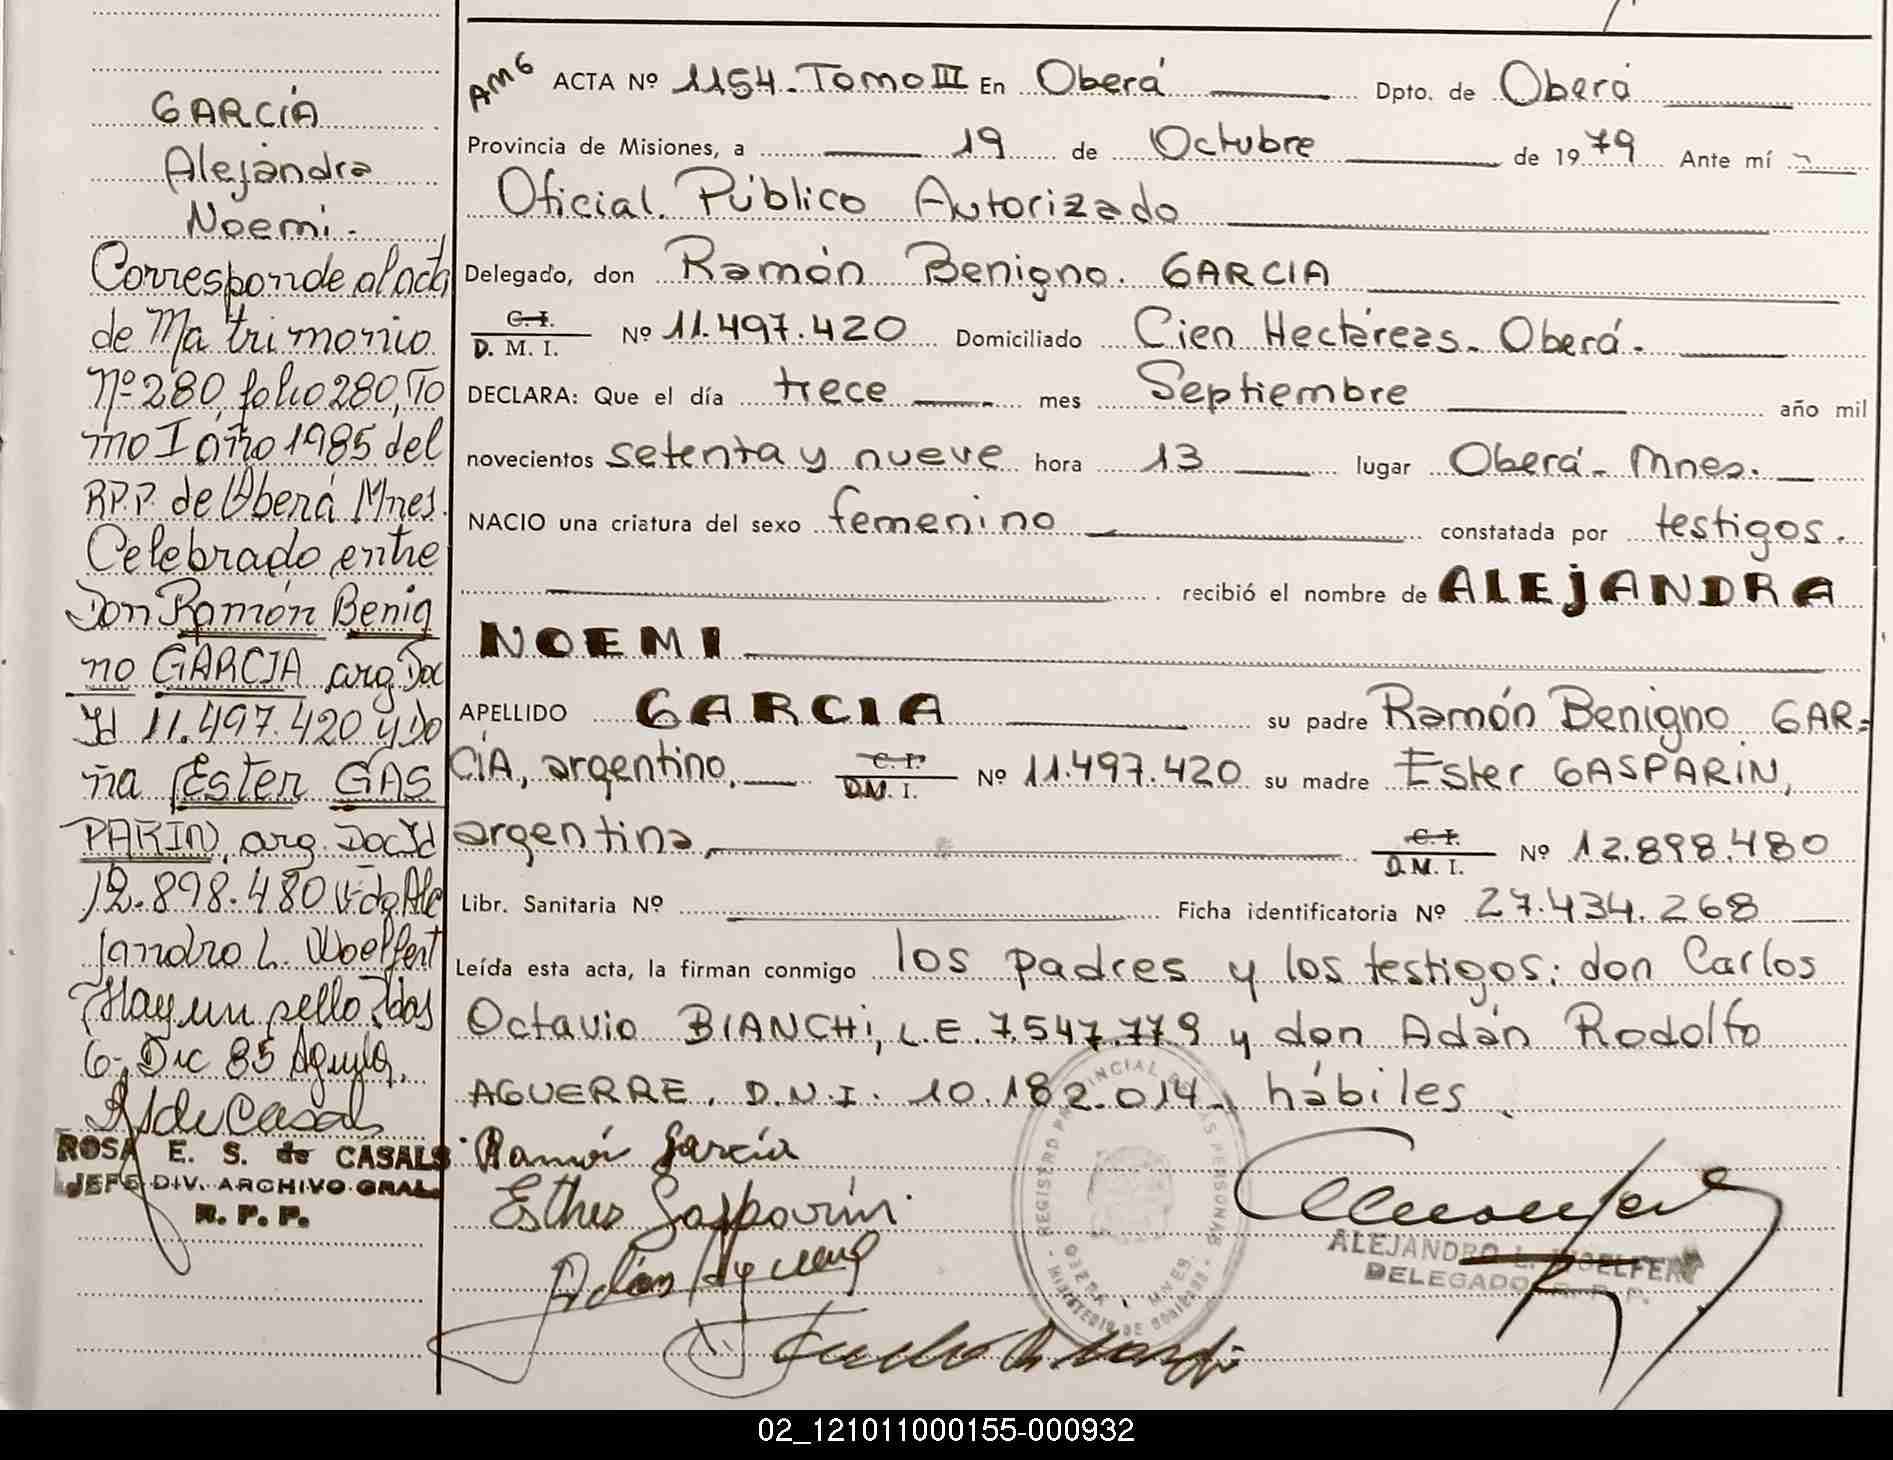 GARCÍA
Alejandra
Noemi.-
Corresponde al acta
de Matrimonio
Nº 280, folio 280, To
mo I año 1985 del
R.P.P. de Oberá Mnes.
Celebrado entre
Don Ramón Benig
no GARCIA arg Doc
Id 11.497.420 y Do
ña Ester GAS
PARIN, arg. Doc Id
12.898.480 fdo Ale
jandro L. Woelfert
Hay un sello Pdas
6- Dic 85
ROSA E. S. de CASALS
JEFE DIV. ARCHIVO GRAL.
R. P. P.
AMG ACTA Nº 1154.- Tomo III En Oberá Dpto. de Oberá
Provincia de Misiones, a 19 de Octubre de 1979 Ante mí
Oficial Público Autorizado
Delegado, don Ramón Benigno. GARCIA
C. I.
D. M. I. Nº 11.497.420 Domiciliado Cien Hectáreas.- Oberá.-
DECLARA: Que el día trece mes Septiembre año mil
novecientos setenta y nueve hora 13 lugar Oberá - Mnes.
NACIO una criatura del sexo femenino constatada por testigos.
recibió el nombre de ALEJANDRA
NOEMI
APELLIDO GARCIA su padre Ramón Benigno GAR-
CÍA, argentino, C. I. D.M. I. Nº 11.497.420 su madre Ester GASPARIN,
argentina, C. I. D.M. I. Nº 12.898.480
Libr. Sanitaria Nº Ficha identificatoria Nº 27.434.268
Leída esta acta, la firman conmigo los padres y los testigos: don Carlos
Octavio BIANCHI, L.E. 7.547.779 y don Adán Rodolfo
AGUERRE, D.N.I. 10.182.014, hábiles.
Ramón García
Esther Gasparin
Adán Aguerre
REGISTRO PROVINCIAL DE LAS PERSONAS
OBERA, MNES.
MINISTERIO DE GOBIERNO
ALEJANDRO L. WOELFERT
DELEGADO R. P. P.
02_121011000155-000932